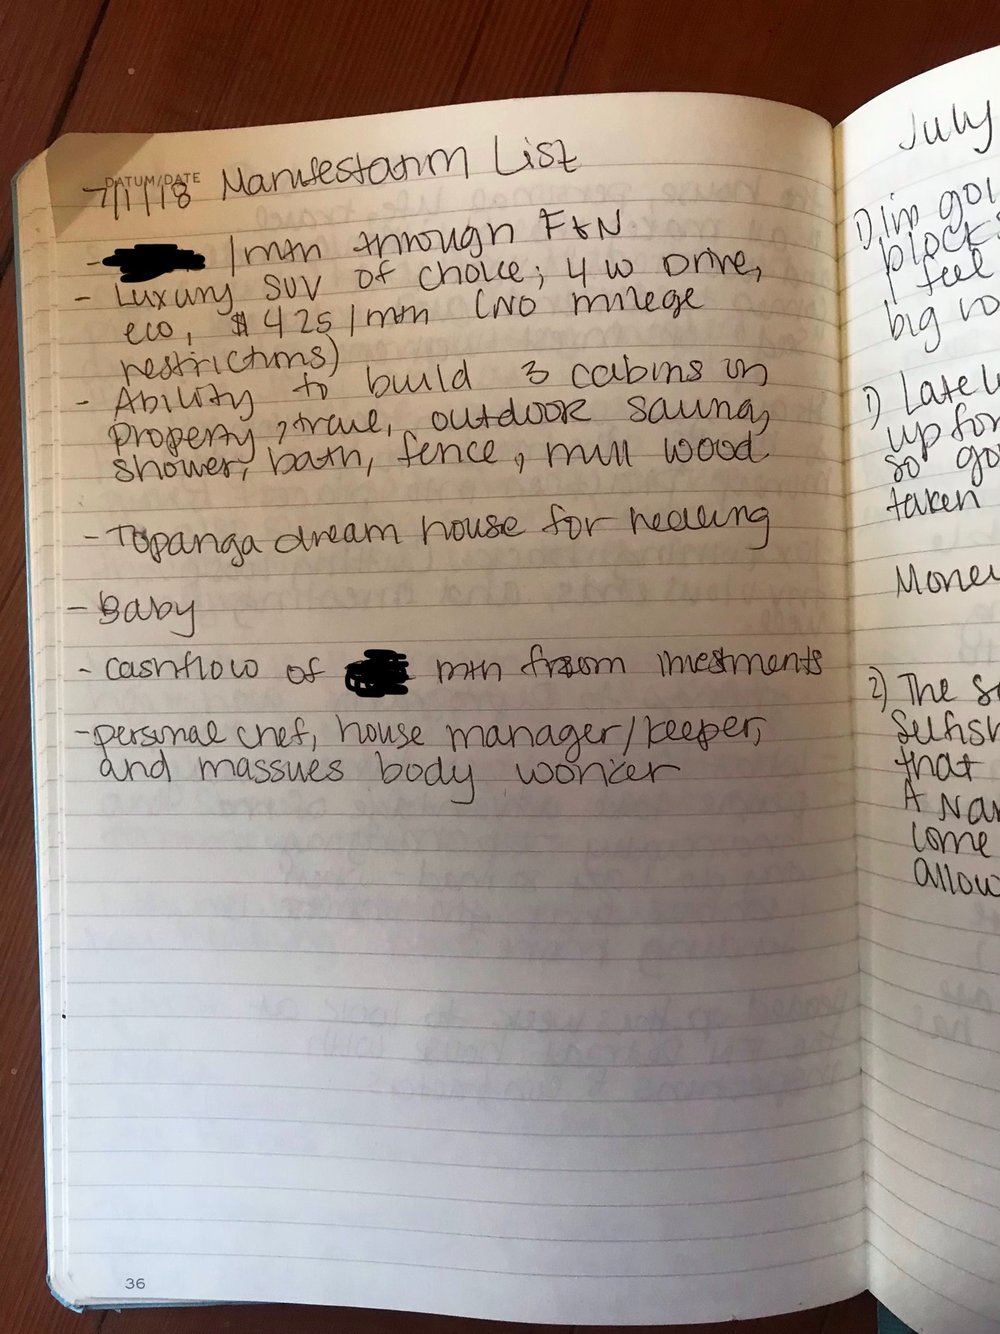 DATUM/DATE
7/1/18 Manifestation List
- /mth through F&N
- Luxury SUV of choice; 4 w Drive,
eco, $425/mth (NO milege
restrictions)
- Ability to build 3 cabins on
property, outdoor sauna,
shower, bath, fence, mill wood
- Topanga dream house for healing
- Baby
- cashflow of mth from investments
- personal chef, house manager/keeper,
and massues body worker
36
July
1) I'm
block
I feel
big
1) Late
up for
so
taken
Money
2) The
Selfish
that
A
come
allow